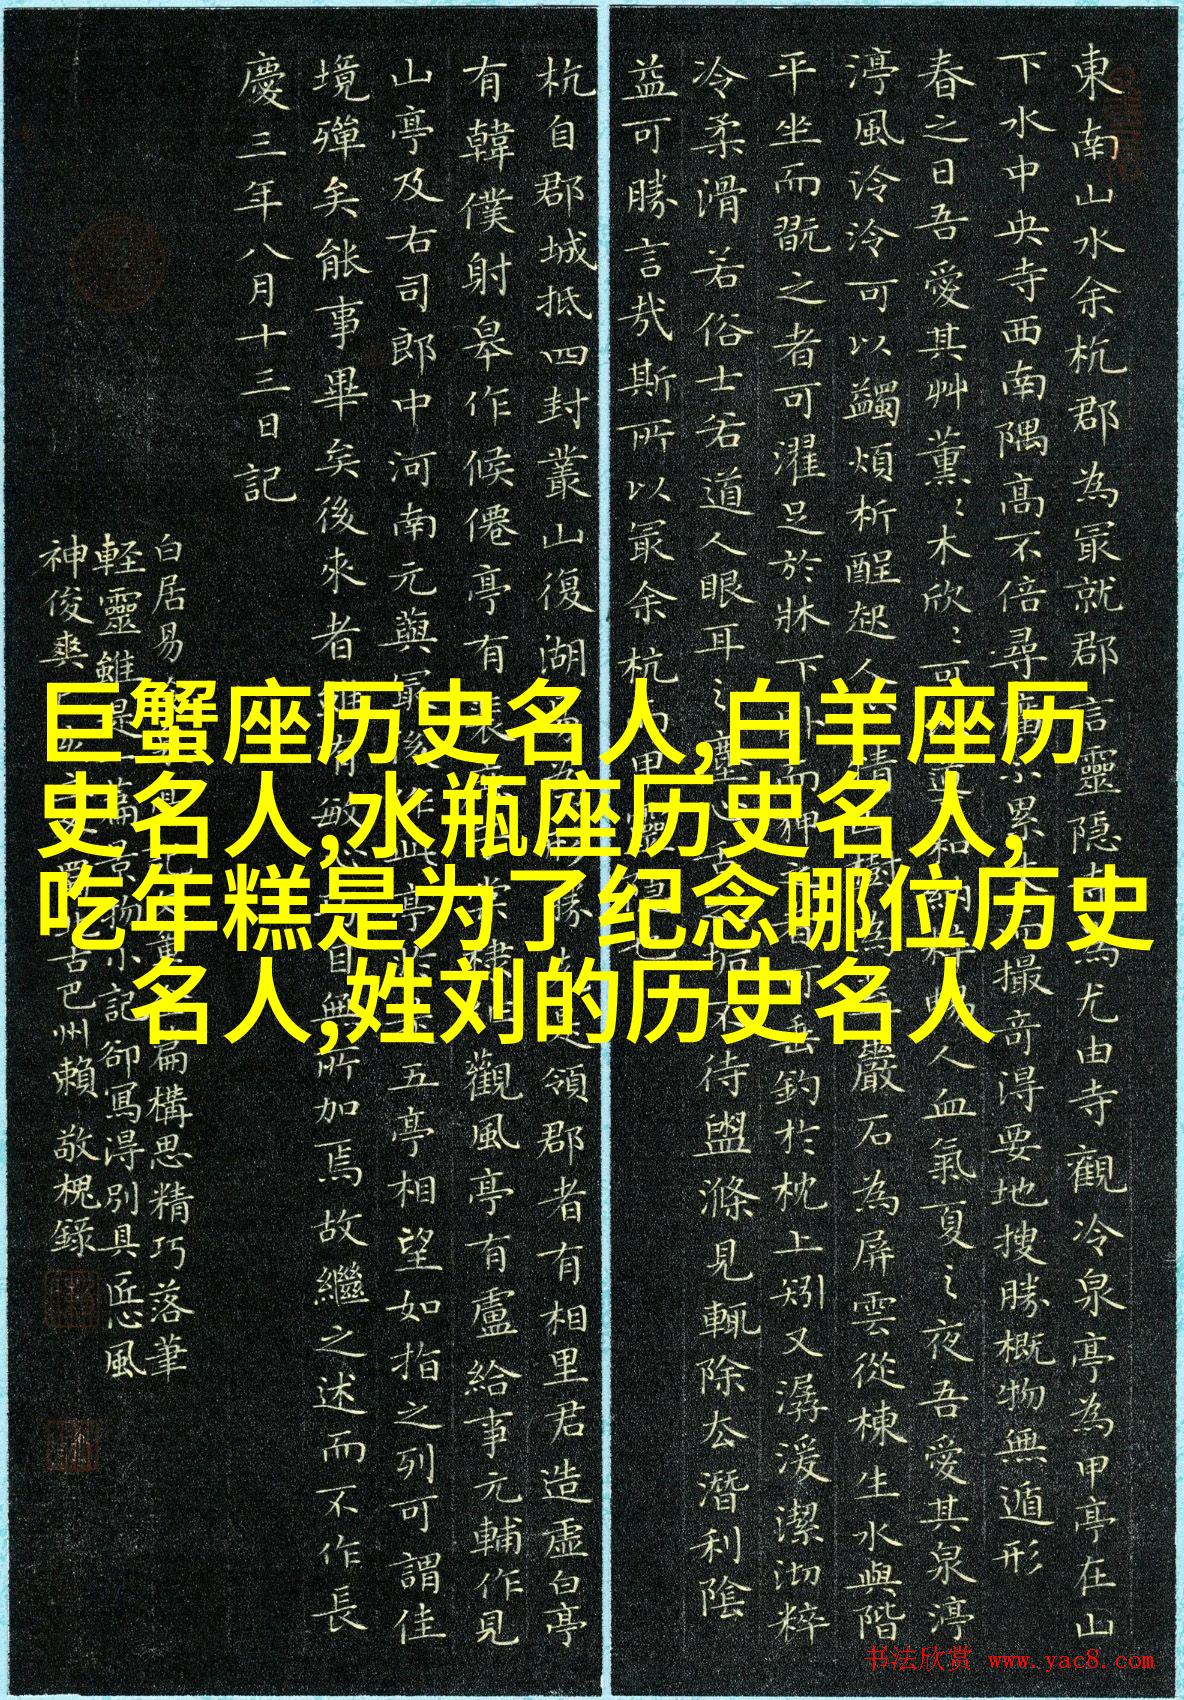 東南山水余杭郡為冣就郡言靈隐為尤由寺觀冷泉亭為甲亭在山
下水中央寺西南隅高不倍尋廣不累撮竒淂要地搜勝概物無遁形
春之日吾愛其艸薰〻木欣〻可導和納人血氣夏之夜吾愛其泉渟
渟風泠泠可以蠲煩析酲起人情樹為巖石為屏雲從棟生水與階
平坐而翫之者可濯足於牀下卧而狎可垂釣於枕上矧又潺湲潔沏粹
冷柔滑若俗士若道人眼耳之塵舌垢不待盥滌見輒除去潛利陰
益可勝言哉斯所以冣余杭而甲靈也
杭自郡城抵四封叢山復湖為勝是領郡者有相里君造虛白亭
有韓僕射皋作候僊亭有裴棠棣作觀風亭有盧給事元輔作見
山亭及右司郎中河南元藇冣後作此亭五亭相望如指之列可謂佳
境殫矣能事畢矣後來者雖有敏目無所加焉故繼之述而不作長
慶三年八月十三日記
白居易篇構思精巧落筆
軽靈雖是篇景物小記卻寫淂別具匠心風
神俊爽古巴州賴敬槐錄
巨蟹座历史名人,白羊座历
史名人,水瓶座历史名人,
吃年糕是为了纪念哪位历史
名人,姓刘的历史名人
书法欣赏 www.yac8.com